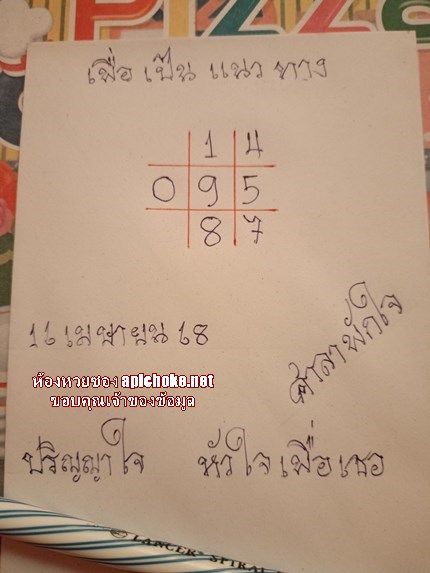 PIZZA
เพื่อ เป็น แนว ทาง
1 4
0 9 5
8 7
16 เมษายน 68
ศาลาพักใจ
ห้องหวยซอง apichoke.net
ขอบคุณเจ้าของข้อมูล
ปริญญาใจ หัวใจเพื่อเธอ
LANCER SPIRAL